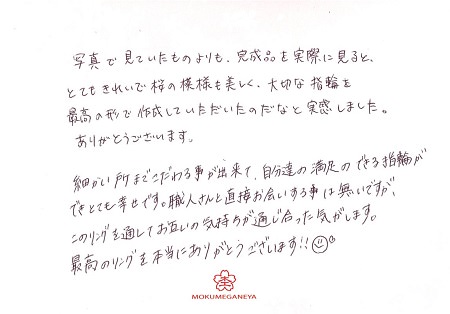 写真で見ていたものよりも、完成品を実際に見ると、
とてもきれいで桜の模様も美しく、大切な指輪を
最高の形で作成していただいたのだなと実感しました。
ありがとうございます。
細かい所までこだわる事が出来て、自分達の満足のできる指輪が
できとても幸せです。職人さんと直接お会いする事は無いですが、
このリングを通してお互いの気持ちが通じ合った気がします。
最高のリングを本当にありがとうございます!!
MOKUMEGANEYA